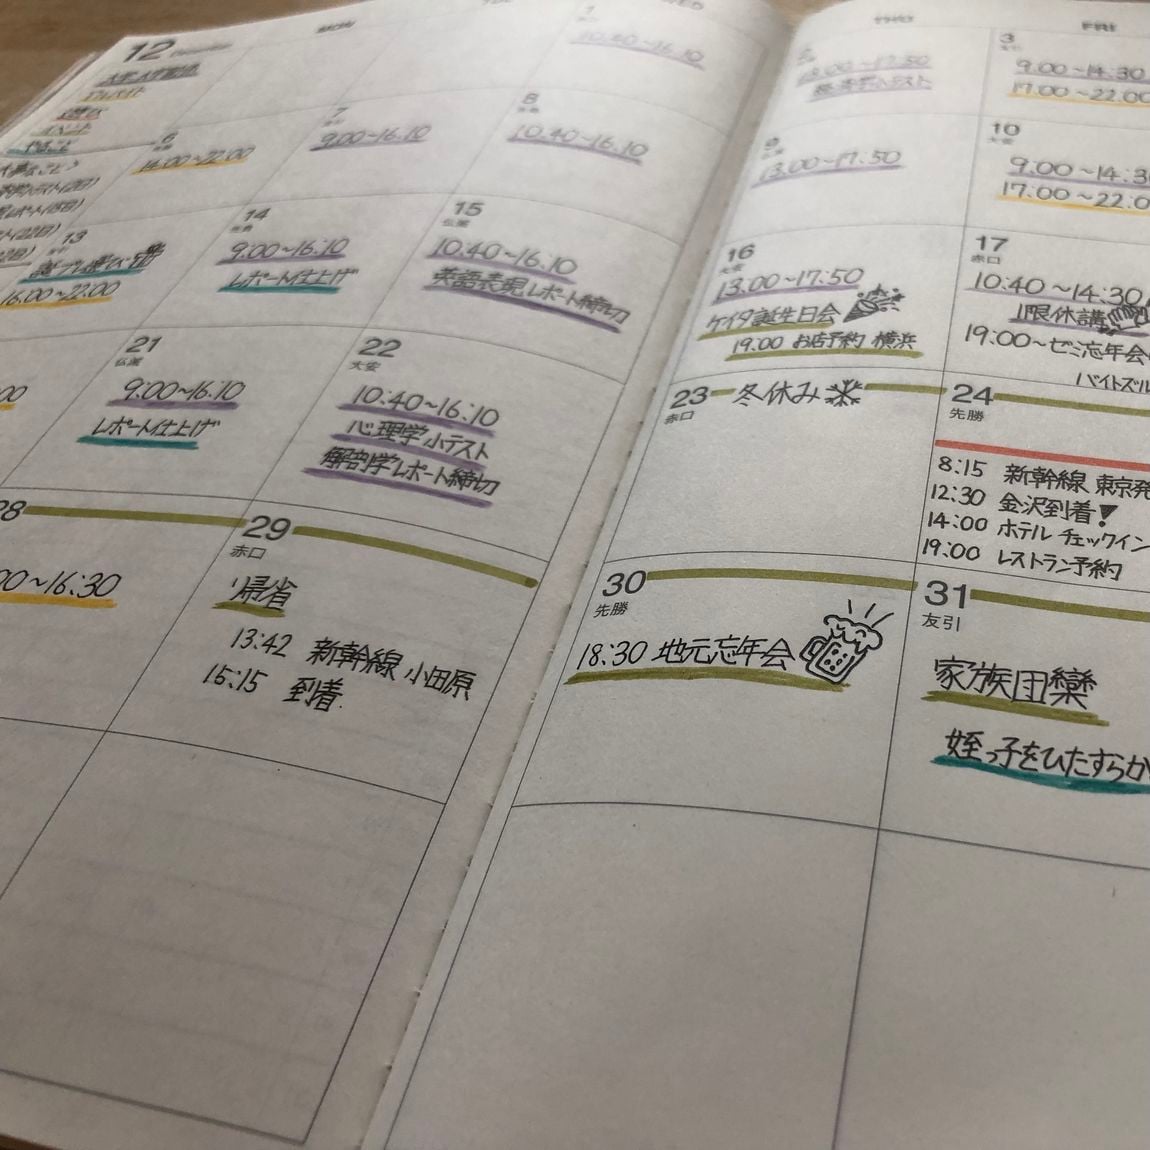 12 December
MON
WED
THU
FRI
アルバイト
遊び
イベント
やること
1
10:40~16:10
2
13:00~17:50
3
9:00~14:30
17:00~22:00
6
16:00~22:00
7
9:00~16:10
8
10:40~16:10
9
13:00~17:50
10
大安
9:00~14:30
17:00~22:00
13
16:00~22:00
14
9:00~16:10
レポート仕上げ
15
仏滅
10:40~16:10
英語表現レポート締切
16
大安
13:00~17:50
ケイタ誕生日会
19:00 お店予約 横浜
17
赤口
10:40~14:30
1限休講
19:00~ゼミ忘年会
バイトズル
21
仏滅
9:00~16:10
レポート仕上げ
22
大安
10:40~16:10
心理学小テスト
解剖学レポート締切
23 冬休み
赤口
24
先勝
8:15 新幹線 東京発
12:30 金沢到着
14:00 ホテル チェックイン
19:00 レストラン予約
28
00~16:30
29
赤口
帰省
13:42 新幹線 小田原
15:15 到着.
30
先勝
18:30 地元忘年会
31
友引
家族団欒
姪っ子をひたすらか